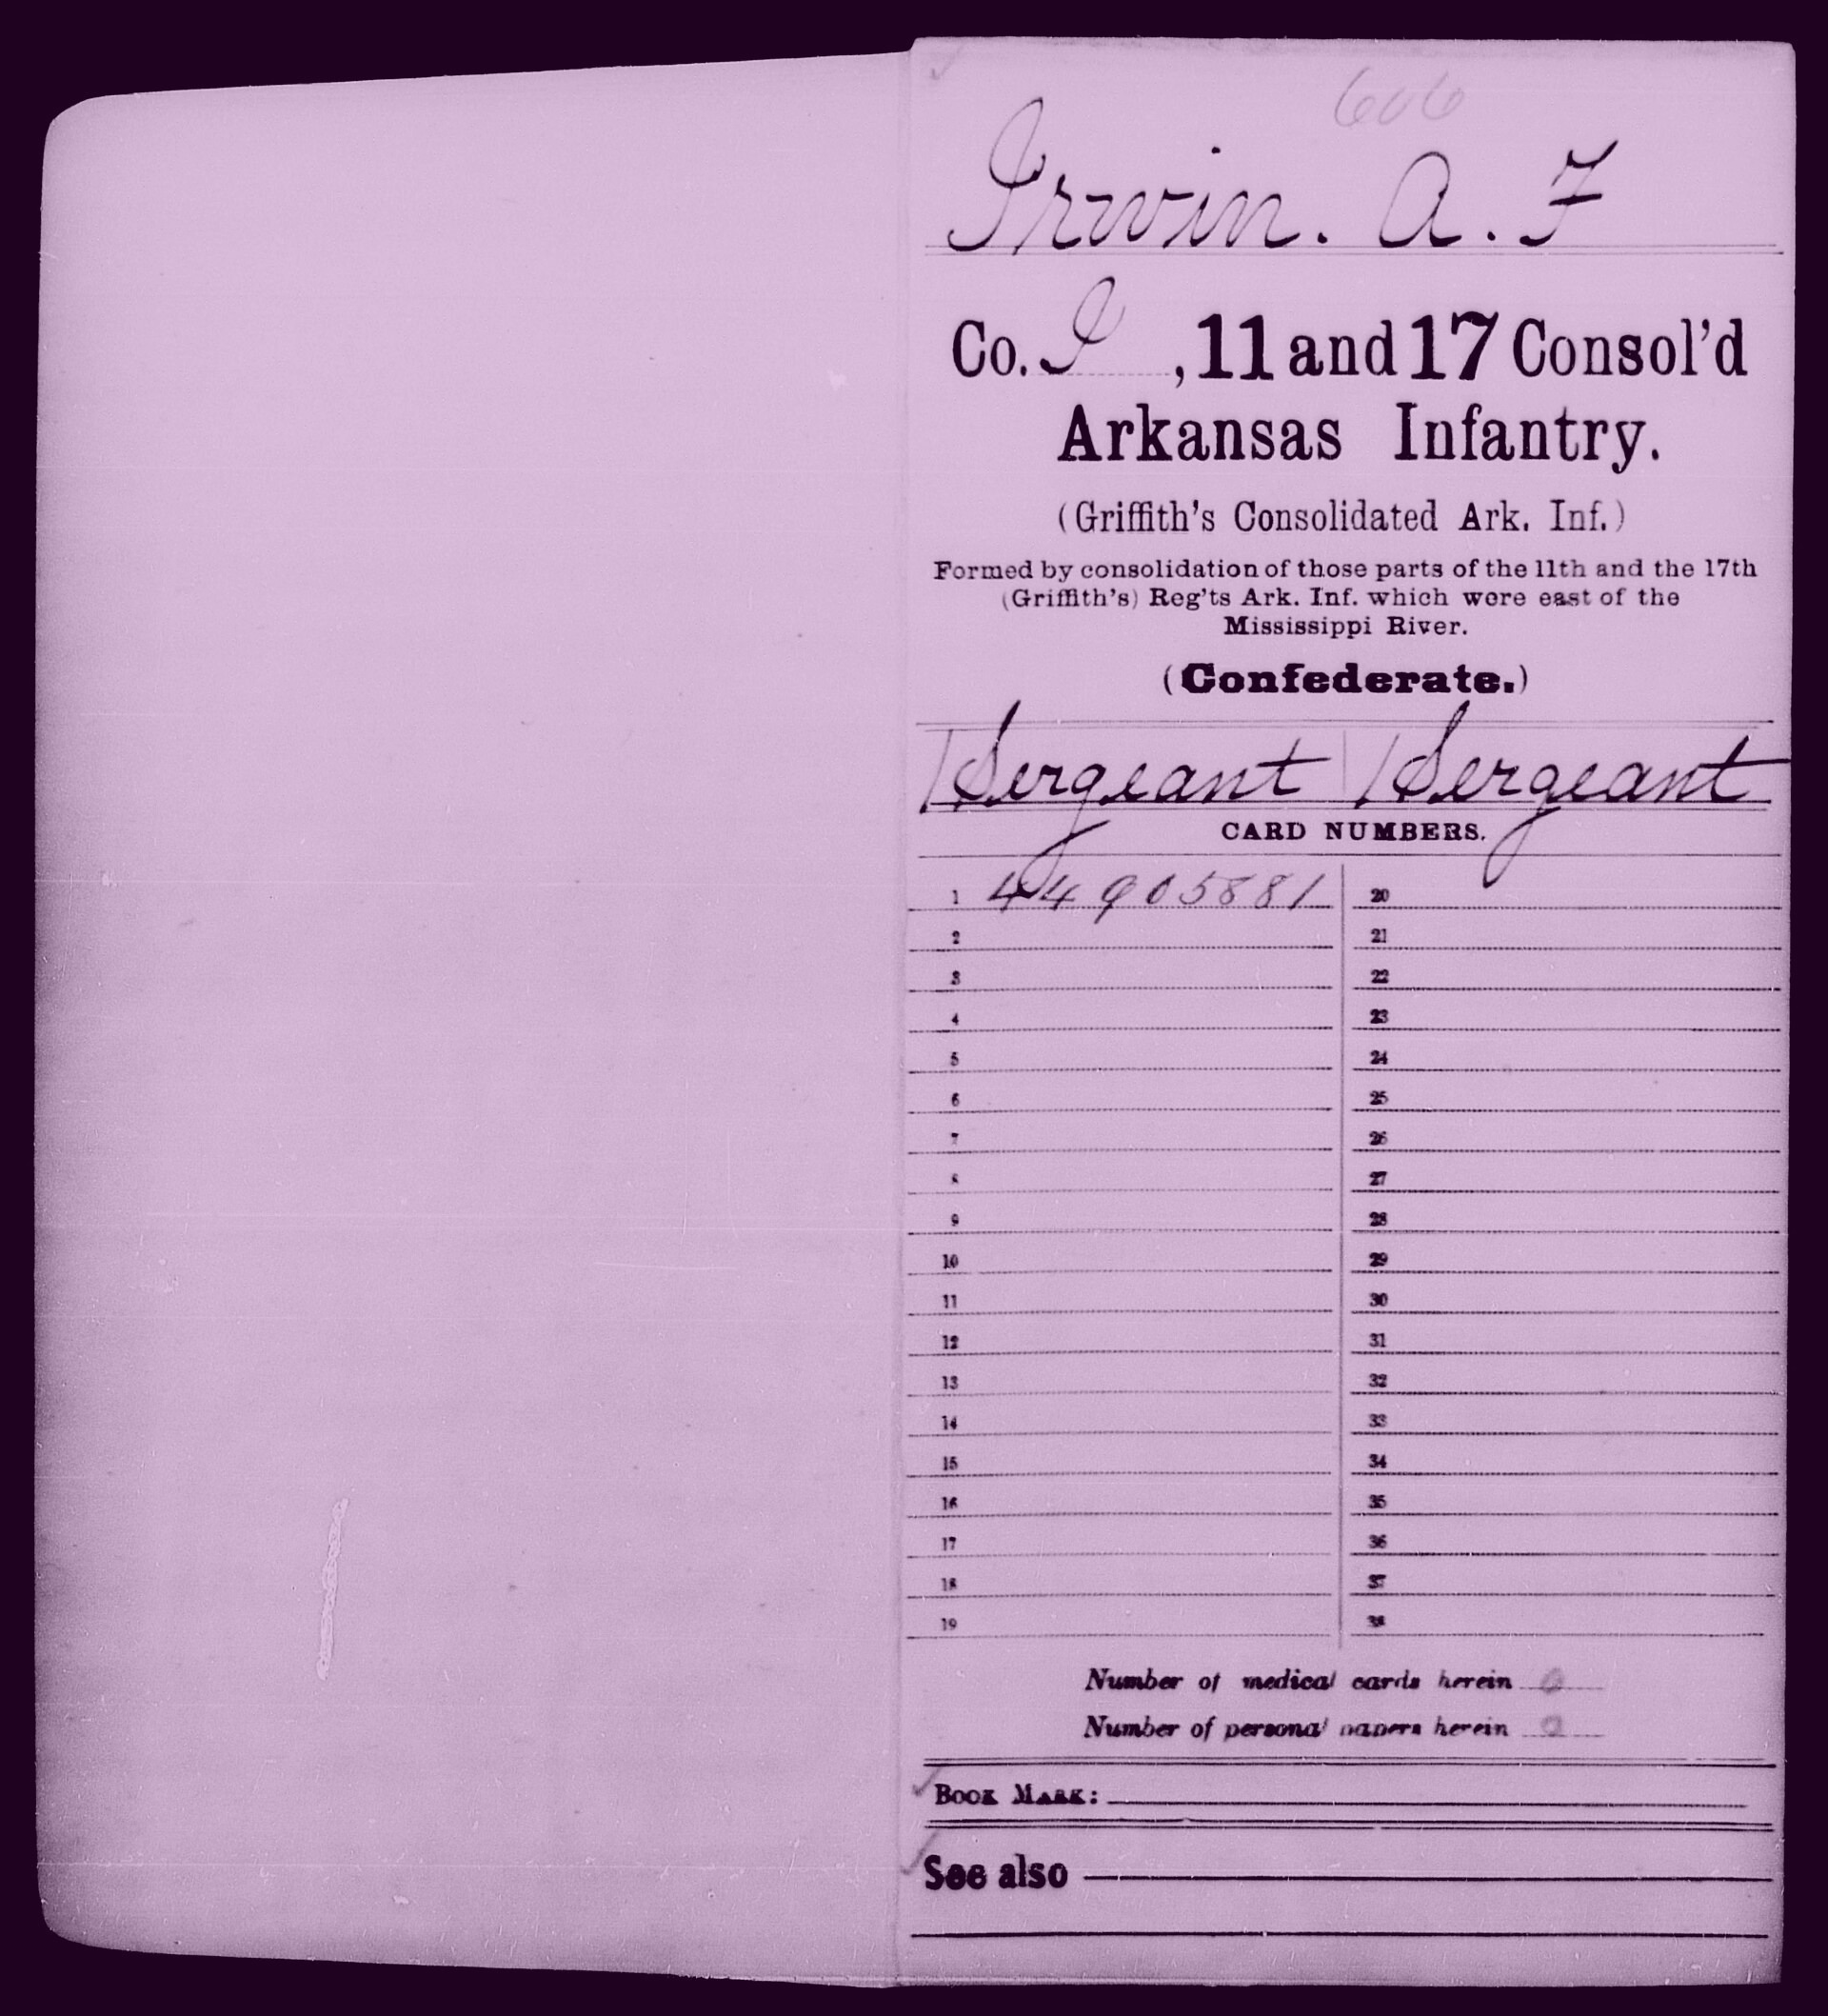 606
Irwin. A. F
Co. I, 11 and 17 Consol'd
Arkansas Infantry.
(Griffith's Consolidated Ark. Inf.)
Formed by consolidation of those parts of the 11th and the 17th
(Griffith's) Reg'ts Ark. Inf. which were east of the
Mississippi River.
(Confederate.)
1 Sergeant 1 Sergeant
CARD NUMBERS.
1 44905881 20
2 21
3 22
4 23
5 24
6 25
7 26
8 27
9 28
10 29
11 30
12 31
13 32
14 33
15 34
16 35
17 36
18 37
19 38
Number of medical cards herein 0
Number of personal papers herein 0
BOOK MARK:
See also